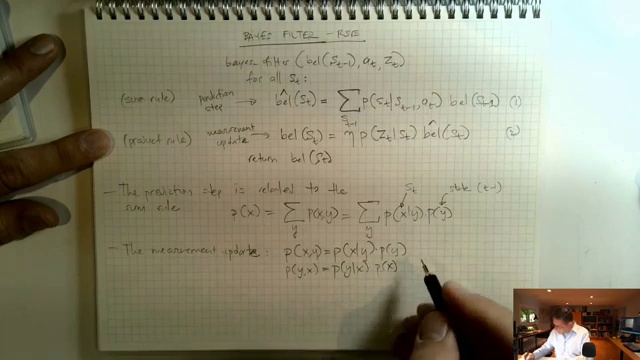 BAYES FILTER - RSE
bayes filter (bel(St-1), at, Zt)
for all St:
(sum rule) prediction step → bel̂(St) = ∑St-1 p(St|St-1, at) bel(St-1) (1)
(product rule) measurement update → bel(St) = η p(Zt|St) bel̂(St) (2)
return bel(St)
- The prediction step is related to the
sum rule
St state (t-1)
p(x) = ∑y p(x,y) = ∑y p(x|y) p(y)
- The measurement update: p(x,y) = p(x|y)·p(y)
p(y,x) = p(y|x) p(x)